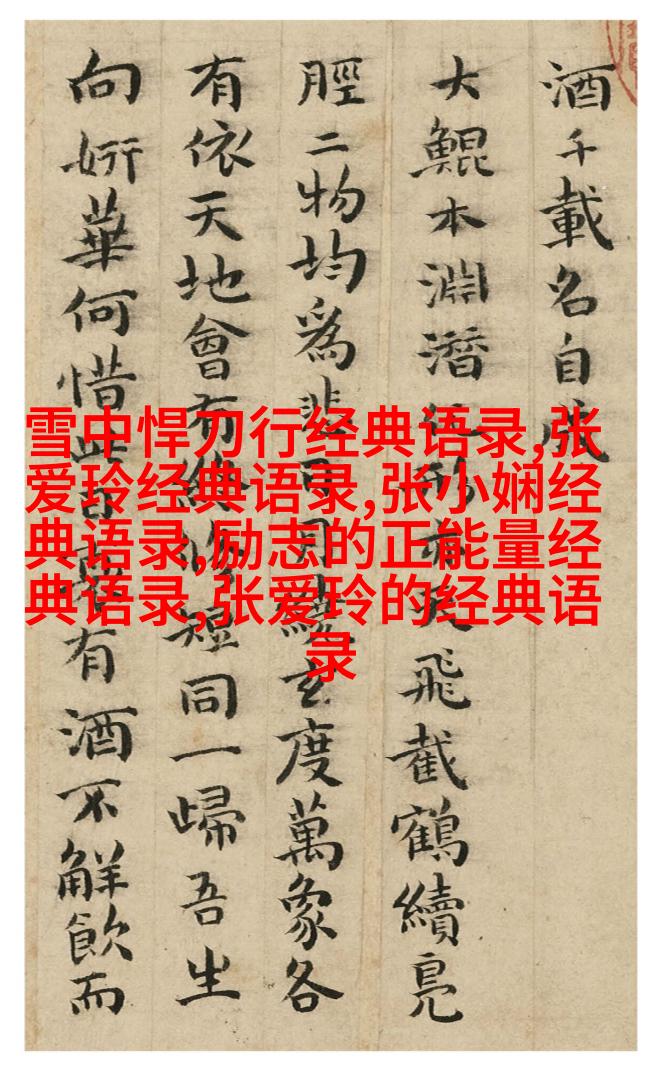 酒千載名自張
大鯤本淵潛形亦飛截鶴續鳧
脛二物均為悲玄度萬象各
有依天地會有終脩短同一歸吾生
向妍華何惜有酒不解飲而
雪中悍刀行经典语录,张
爱玲经典语录,张小娴经
典语录,励志的正能量经
典语录,张爱玲的经典语
录